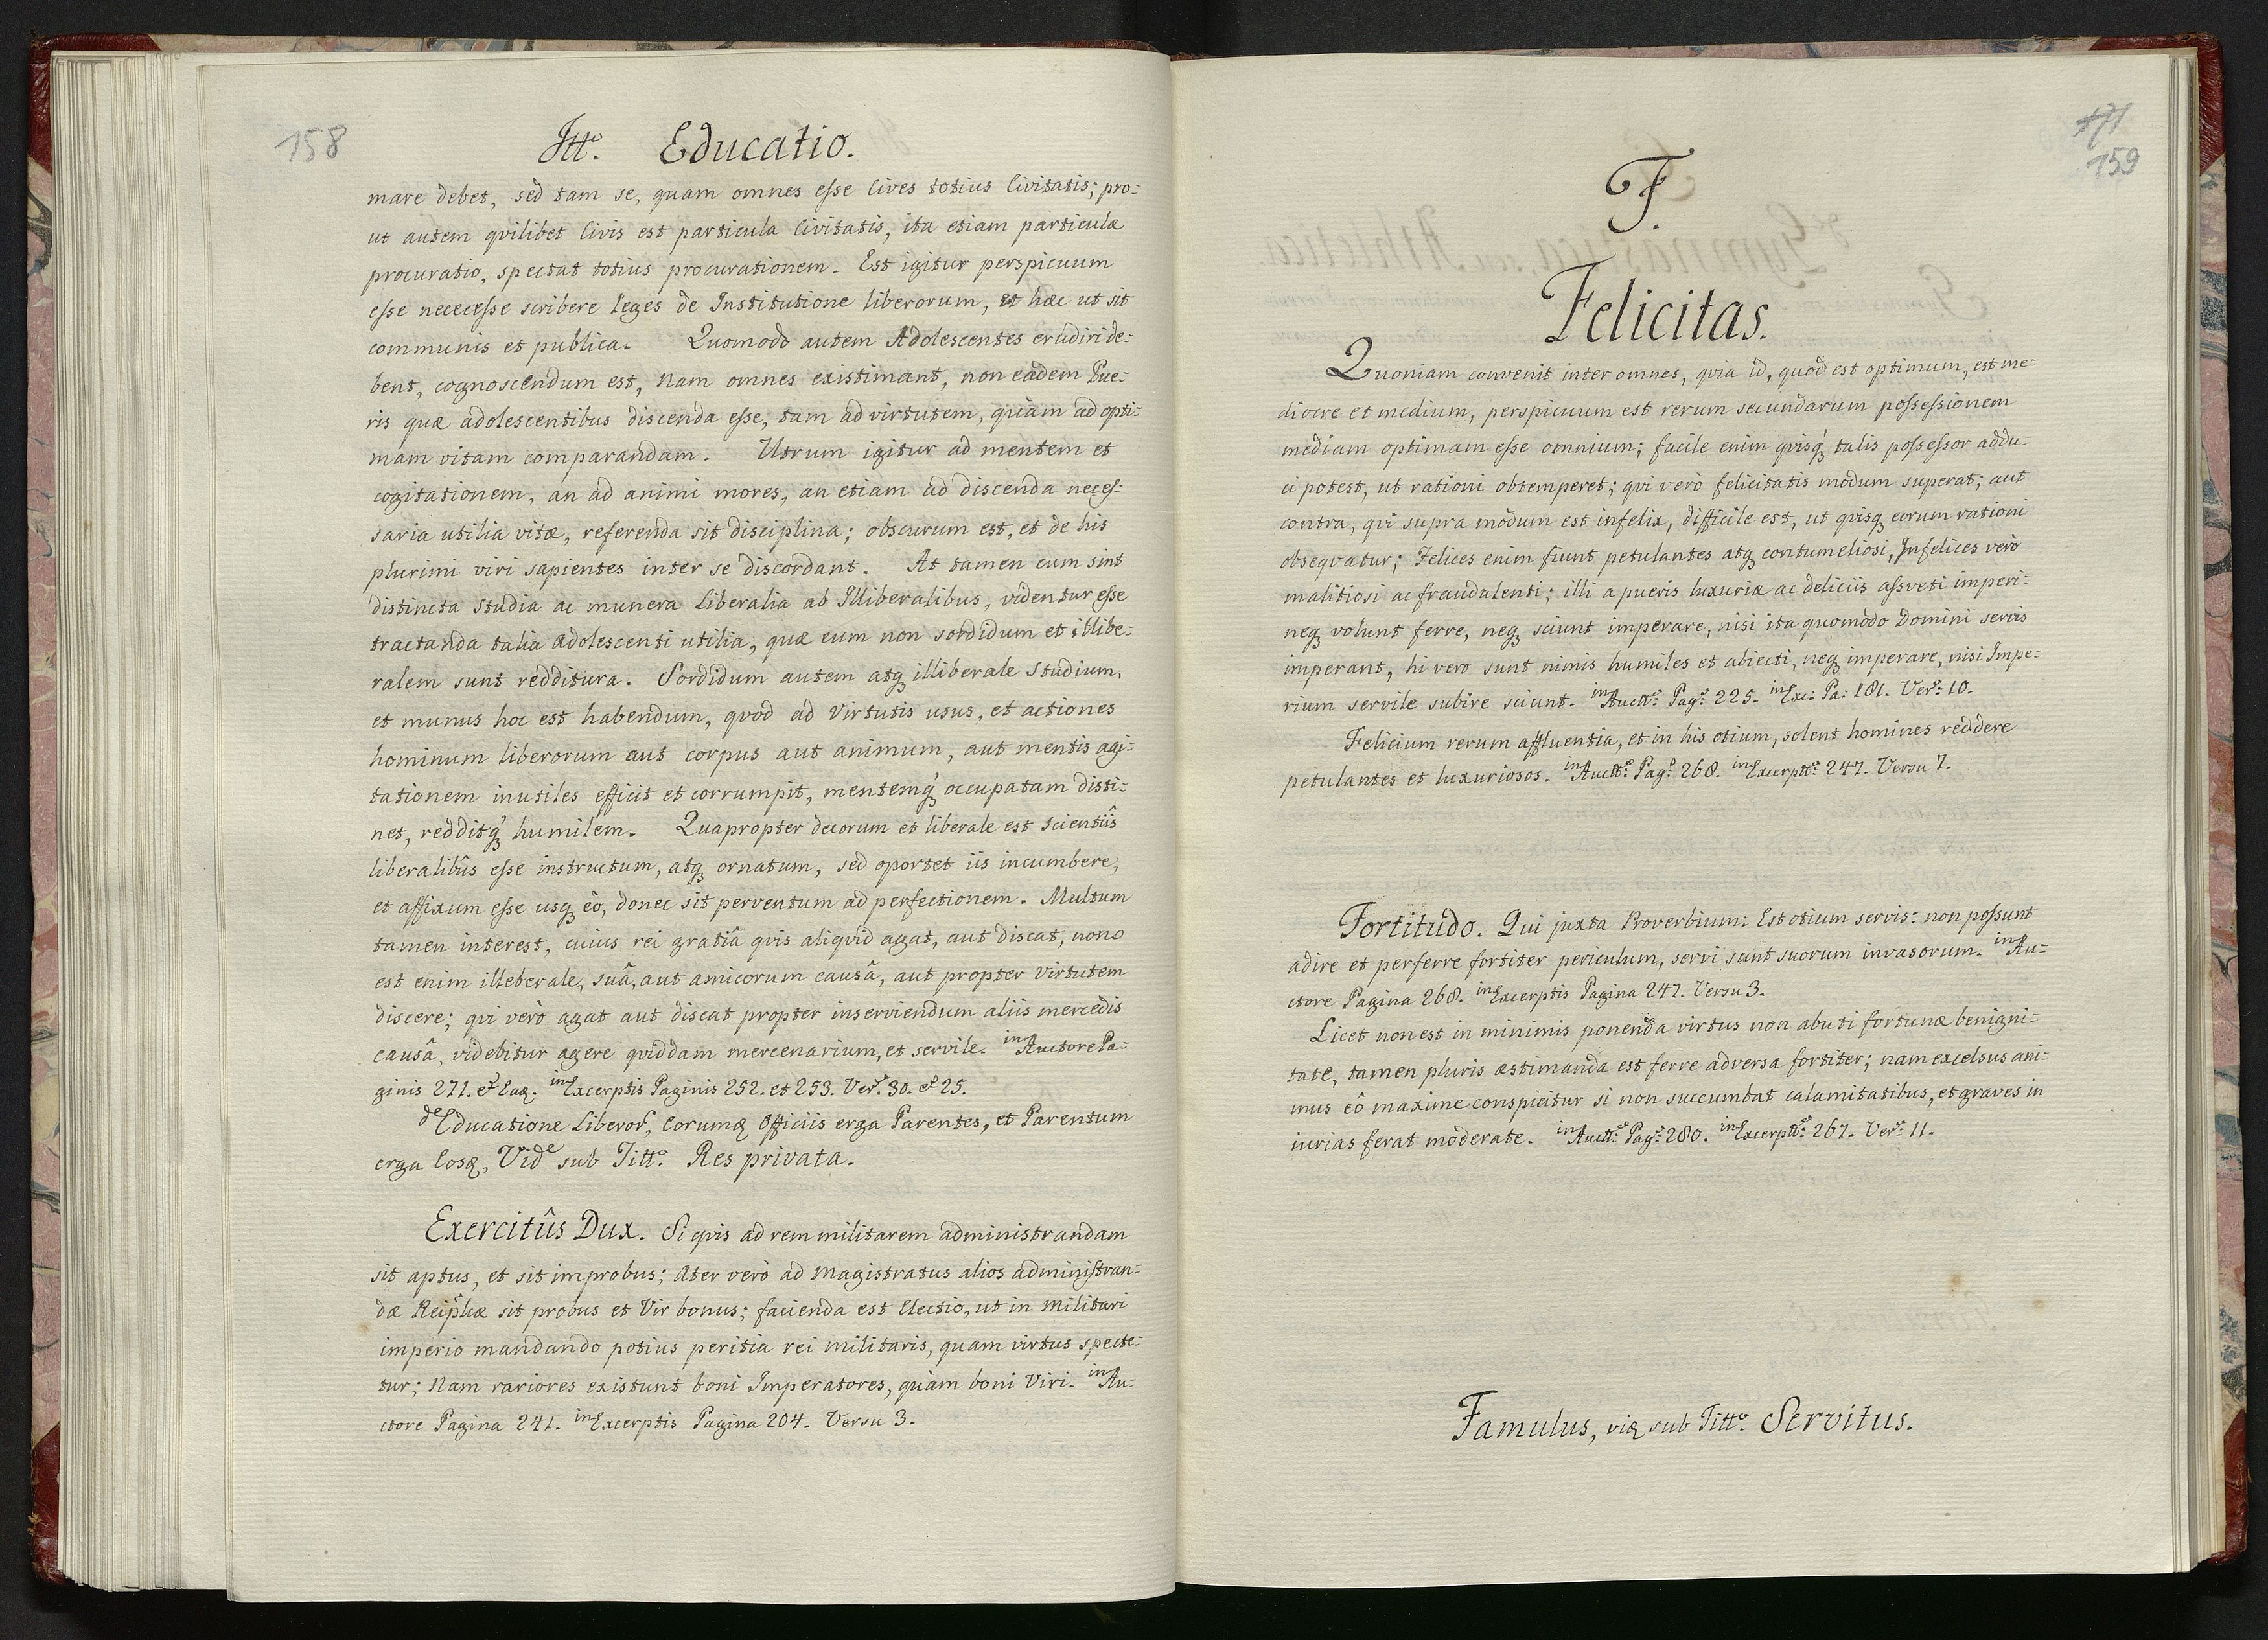 158
Itt.º Educatio.
mare debet, sed tam se, quam omnes esse Cives totius Civitatis; pro=
ut autem qvilibet Civis est particula Civitatis, ita etiam particulæ
procuratio, spectat totius procurationem. Est igitur perspicuum
esse nececesse scribere leges de Institutione liberorum, et hæc ut sit
communis et publica. Quomodo autem Adolescentes erudiri de=
bent, cognoscendum est, nam omnes existimant, non eadem Pue=
ris quæ adolescentibus discenda esse, tam ad virtutem, quàm ad opti=
mam vitam comparandam. Utrum igitur ad mentem et
cogitationem, an ad animi mores, an etiam ad discenda neces=
saria utilia vitæ, referenda sit disciplina; obscurum est, et de his
plurimi viri sapientes inter se discordant. At tamen cum sint
distincta studia ac munera Liberalia ab Illiberalibus, videntur esse
tractanda talia adolescenti utilia, quæ eum non sordidum et illibe=
ralem sunt redditura. Sordidum autem atq; illiberale studium,
et munus hoc est habendum, qvod ad virtutis usus, et actiones
hominum liberorum aut corpus aut animum, aut mentis agi=
tationem inutiles efficit et corrumpit, mentemq; occupatam disti=
net, redditq; humilem. Quapropter decorum et liberale est scientiis
liberalibûs esse instructum, atq; ornatum, sed oportet iis incumbere,
et affixum esse usq; eò, donec sit perventum ad perfectionem. Multum
tamen interest, cuius rei gratiâ qvis aliqvid agat, aut discat, non
est enim illeberale, suâ, aut amicorum causâ, aut propter virtutem
discere; qvi verò agat aut discat propter inserviendum aliis mercedis
causâ, videbitur agere qviddam mercenarium, et servile. in Auctore Pa=
ginis 271. et Eaq. in Excerptis Paginis 252. et 253. Ver.s 30. et 25.
de Educatione Liberor, Eorumq; Officiis erga Parentes, et Parentum
erga Eosq; Vide sub Titt.º Res privata.
Exercitûs Dux. Si qvis ad rem militarem administrandam
sit aptus, et sit improbus; Ater verò ad Magistratus alios administran=
dæ Reipĥæ sit probus et Vir bonus; facienda est Electio, ut in militari
imperio mandando potius peritia rei militaris, quam virtus specte=
tur; Nam rariores existunt boni Imperatores, quàm boni Viri. in Au=
ctore Pagina 241. in Excerptis Pagina 204. Versu 3.
171
159
F.
Felicitas.
Quoniam convenit inter omnes, qvia id, quod est optimum, est me=
diocre et medium, perspicuum est rerum secundarum possessionem
mediam optimam esse omnium; facile enim qvisq; talis possessor addu=
ci potest, ut rationi obtemperet; qvi verò felicitatis modum superat; aut
contra, qvi supra modum est infelix, difficile est, ut qvisq; eorum rationi
obseqvatur; Felices enim fiunt petulantes atq; contumeliosi, Infelices verò
malitiosi ac fraudulenti; illi a pueris luxuriæ ac deliciis assveti imperi=
neq; volunt ferre, neq; sciunt imperare, nisi ita quomodo Domini servis
imperant, hi vero sunt nimis humiles et abiecti, neq; imperare, nisi Impe=
rium servile subire sciunt. in Auctt.e Pag.a 225. in Exc: Pa: 181. Ver.s 10.
Felicium rerum affluentia, et in his otium, solent homines reddere
petulantes et luxuriosos. in Auctt.e Pag.a 268. in Excerptt.s 247. Versu 7.
Fortitudo. Qui juxta Proverbium: Est otium servis: non possunt
adire et perferre fortiter periculum, servi sunt suorum invasorum. in Au=
ctore Pagina 268. in Excerptis Pagina 247. Versu 3.
Licet non est in minimis ponenda virtus non abuti fortunæ benigni=
tate, tamen pluris æstimanda est ferre adversa fortiter; nam excelsus ani=
mus eô maxime conspicitur si non succumbat calamitatibus, et graves in
iurias ferat moderate. in Auctt.e Pag.a 280. in Excerptt.s 267. Ver.s 11.
Famulus, viq; sub Titt.º Servitus.